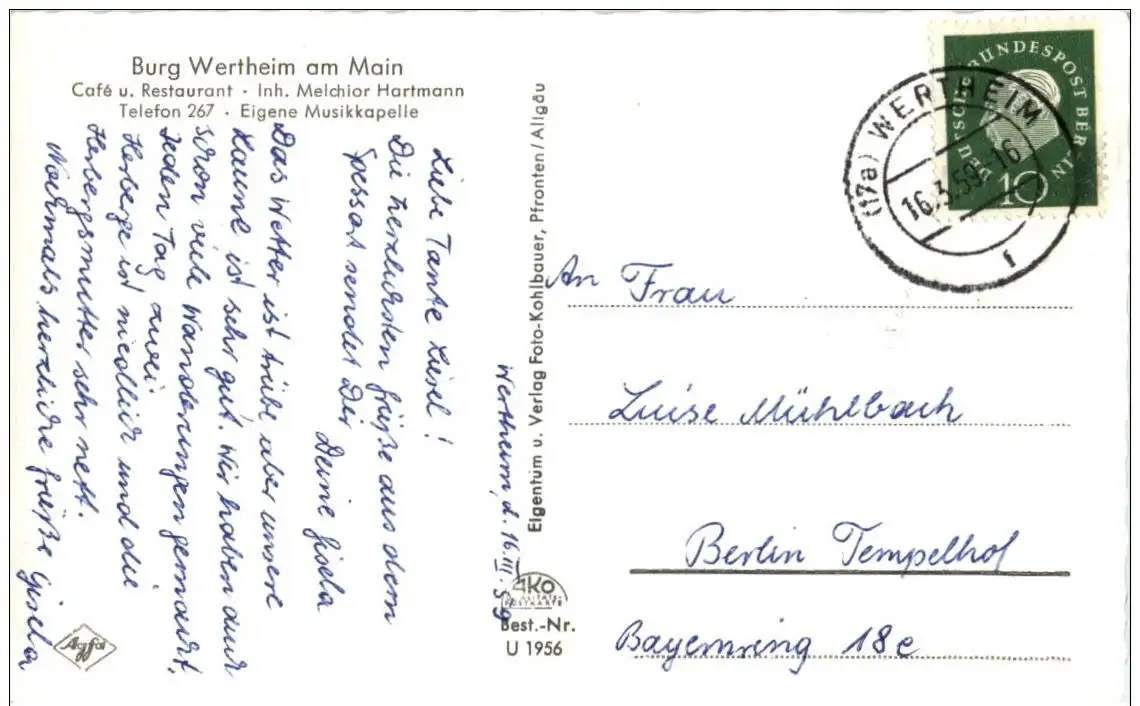 Burg Wertheim am Main
Café u. Restaurant · Inh. Melchior Hartmann
Telefon 267 · Eigene Musikkapelle
Wertheim, d. 16. III. 59
Liebe Tante Liesel!
Die herzlichsten Grüße aus dem
Spessart sendet Dir
Deine Gisela
Das Wetter ist trübe aber unsere
Laune ist sehr gut. Wir haben auch
schon viele Wanderungen gemacht,
Jeden Tag zwei.
Herberge ist niedlich und die
Herbergsmutter sehr nett.
Nochmals herzliche Grüße Gisela
Agfa
Eigentum u. Verlag Foto-Kohlbauer, Pfronten/Allgäu
AKO
QUALITÄTS-
POSTKARTE
Best.-Nr.
U 1956
DEUTSCHE BUNDESPOST BERLIN
10
(17a) WERTHEIM
16.3.59.-16
f
An Frau
Luise Mühlbach
Berlin Tempelhof
Bayernring 18c